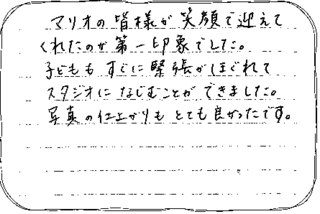 マリオの皆様が笑顔で迎えて
くれたのが第一印象でした。
子どももすぐに緊張がほぐれて
スタジオになじむことができました。
写真の仕上がりもとても良かったです。